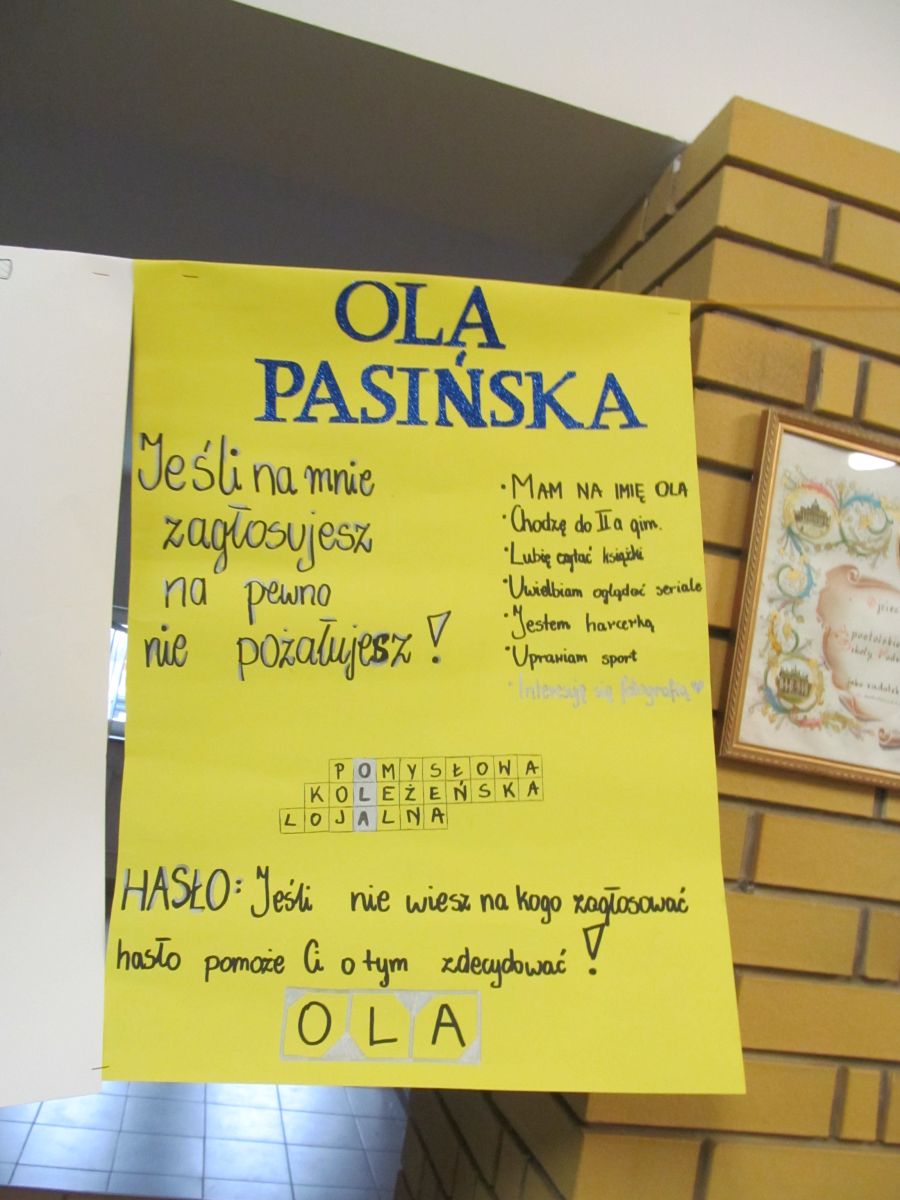 OLA
PASIŃSKA
Jeśli na mnie
zagłosujesz
na pewno
nie pożałujesz!
• MAM NA IMIĘ OLA
• Chodzę do II a gim.
• Lubię czytać książki
• Uwielbiam oglądać seriale
• Jestem harcerką
• Uprawiam sport
• Interesuję się fotografią ♥
POMYSŁOWA
KOLEŻEŃSKA
LOJALNA
HASŁO: Jeśli nie wiesz na kogo zagłosować
hasło pomoże Ci o tym zdecydować!
OLA